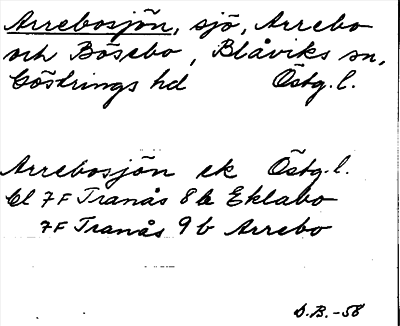 Arrebosjön, sjö, Arrebo
och Bösebo, Blåviks sn,
Göstrings hd Östg.l.
Arrebosjön ek Östg.l.
bl 7F Tranås 8b Eklabo
7F Tranås 9b Arrebo
D.B.-58